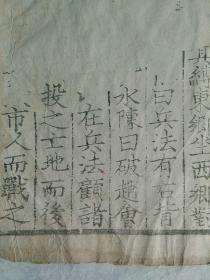 縛東鄉坐西鄉對
曰兵法有右背
水陳曰破趙會
在兵法顧諸
投之亡地而後
市人而戰之